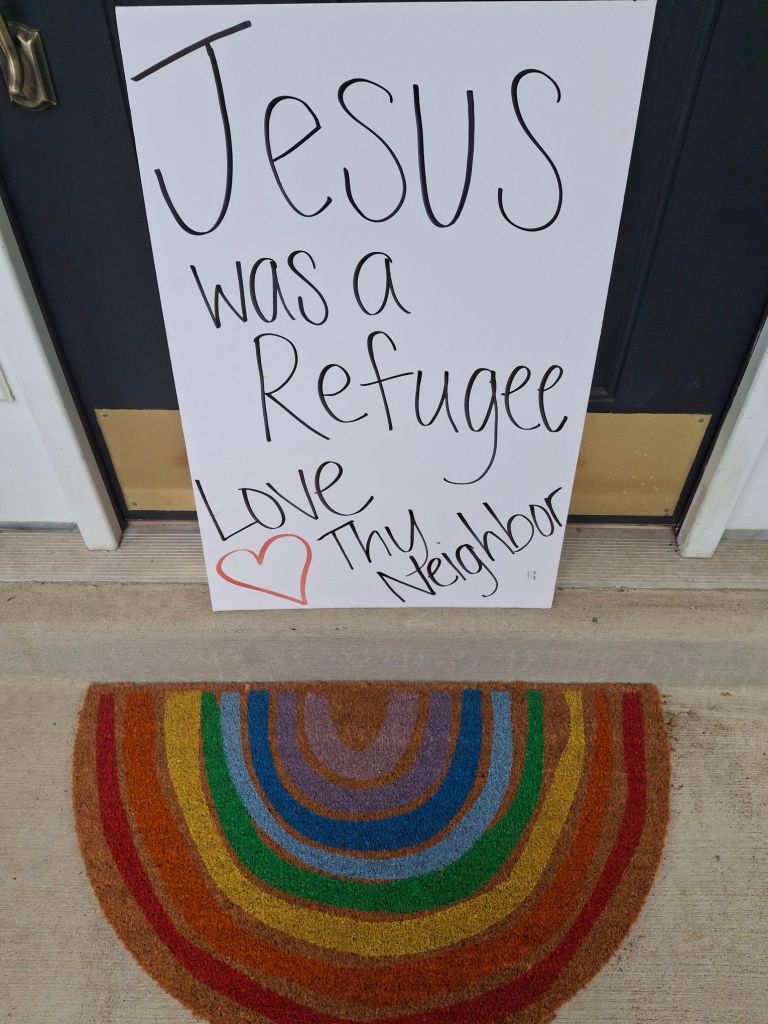 Jesus
was a
Refugee
Love
Thy
Neighbor